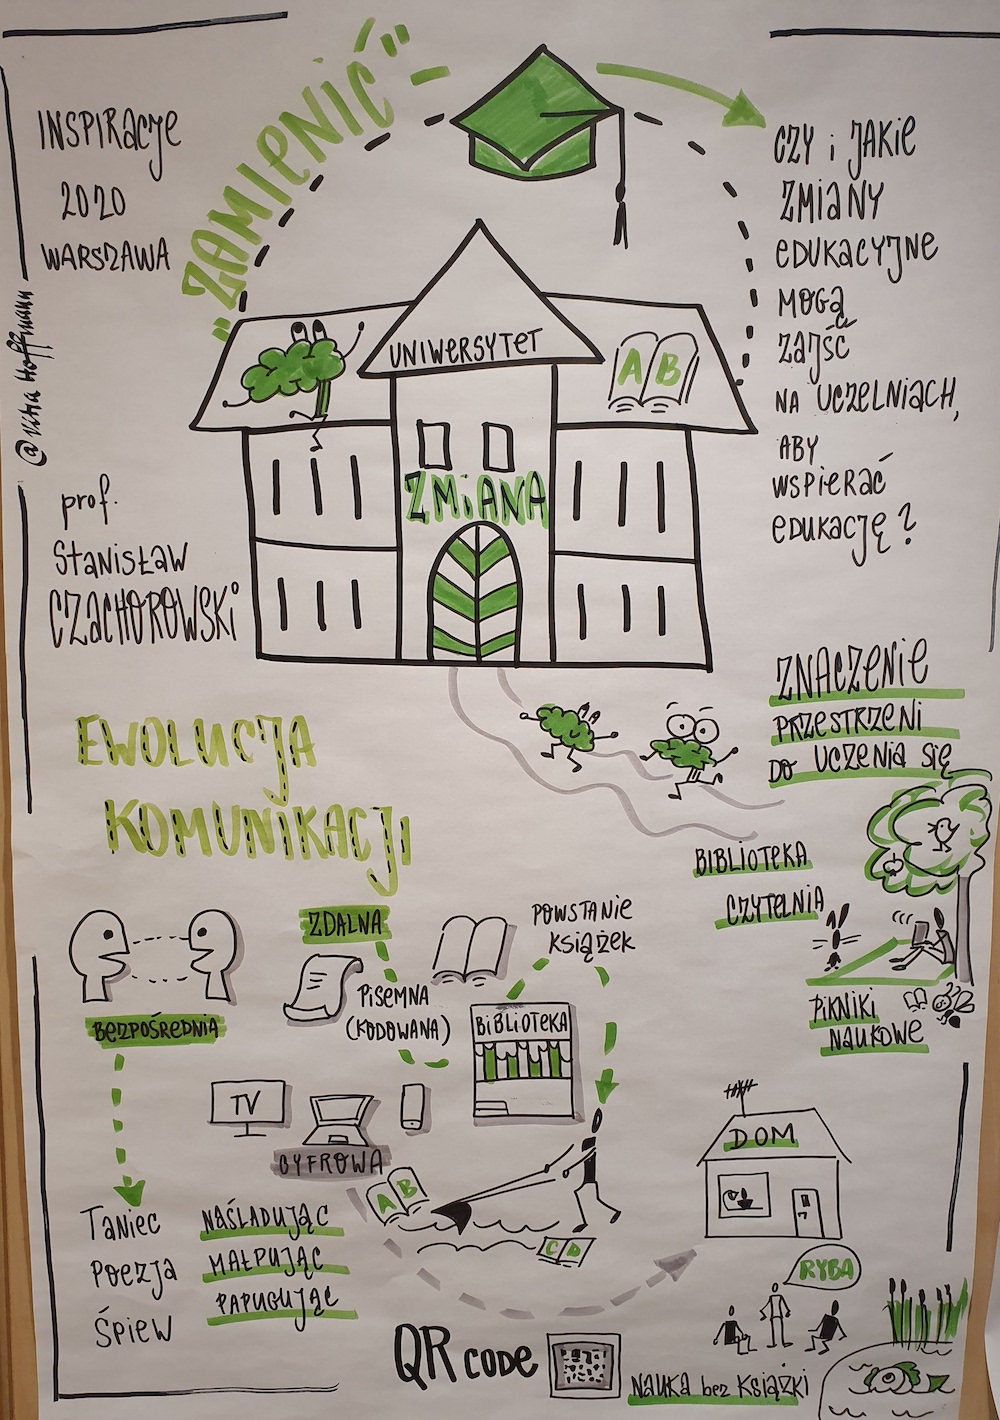 INSPIRACJE
2020
WARSZAWA
"ZAMIENIĆ"
CZY i JAKIE
ZMIANY
EDUKACYJNE
MOGĄ
ZAJŚĆ
NA UCZELNIACH,
ABY
WSPIERAĆ
EDUKACJĘ?
UNIWERSYTET
A B
ZMIANA
Hoffmann
prof.
Stanisław
CZACHOROWSKI
EWOLUCJA
KOMUNIKACJI
ZNACZENIE
PRZESTRZENI
DO UCZENIA SIĘ
BIBLIOTEKA
CZYTELNIA
PIKNIKI
NAUKOWE
BEZPOŚREDNIA
ZDALNA
PISEMNA
(KODOWANA)
POWSTANIE
KSIĄŻEK
BIBLIOTEKA
TV
CYFROWA
A B
C D
DOM
Taniec
POEZJA
ŚPIEW
NAŚLADUJĄC
MAŁPUJĄC
PAPUGUJĄC
RYBA
QR CODE
NAUKA bez KSIĄŻKI